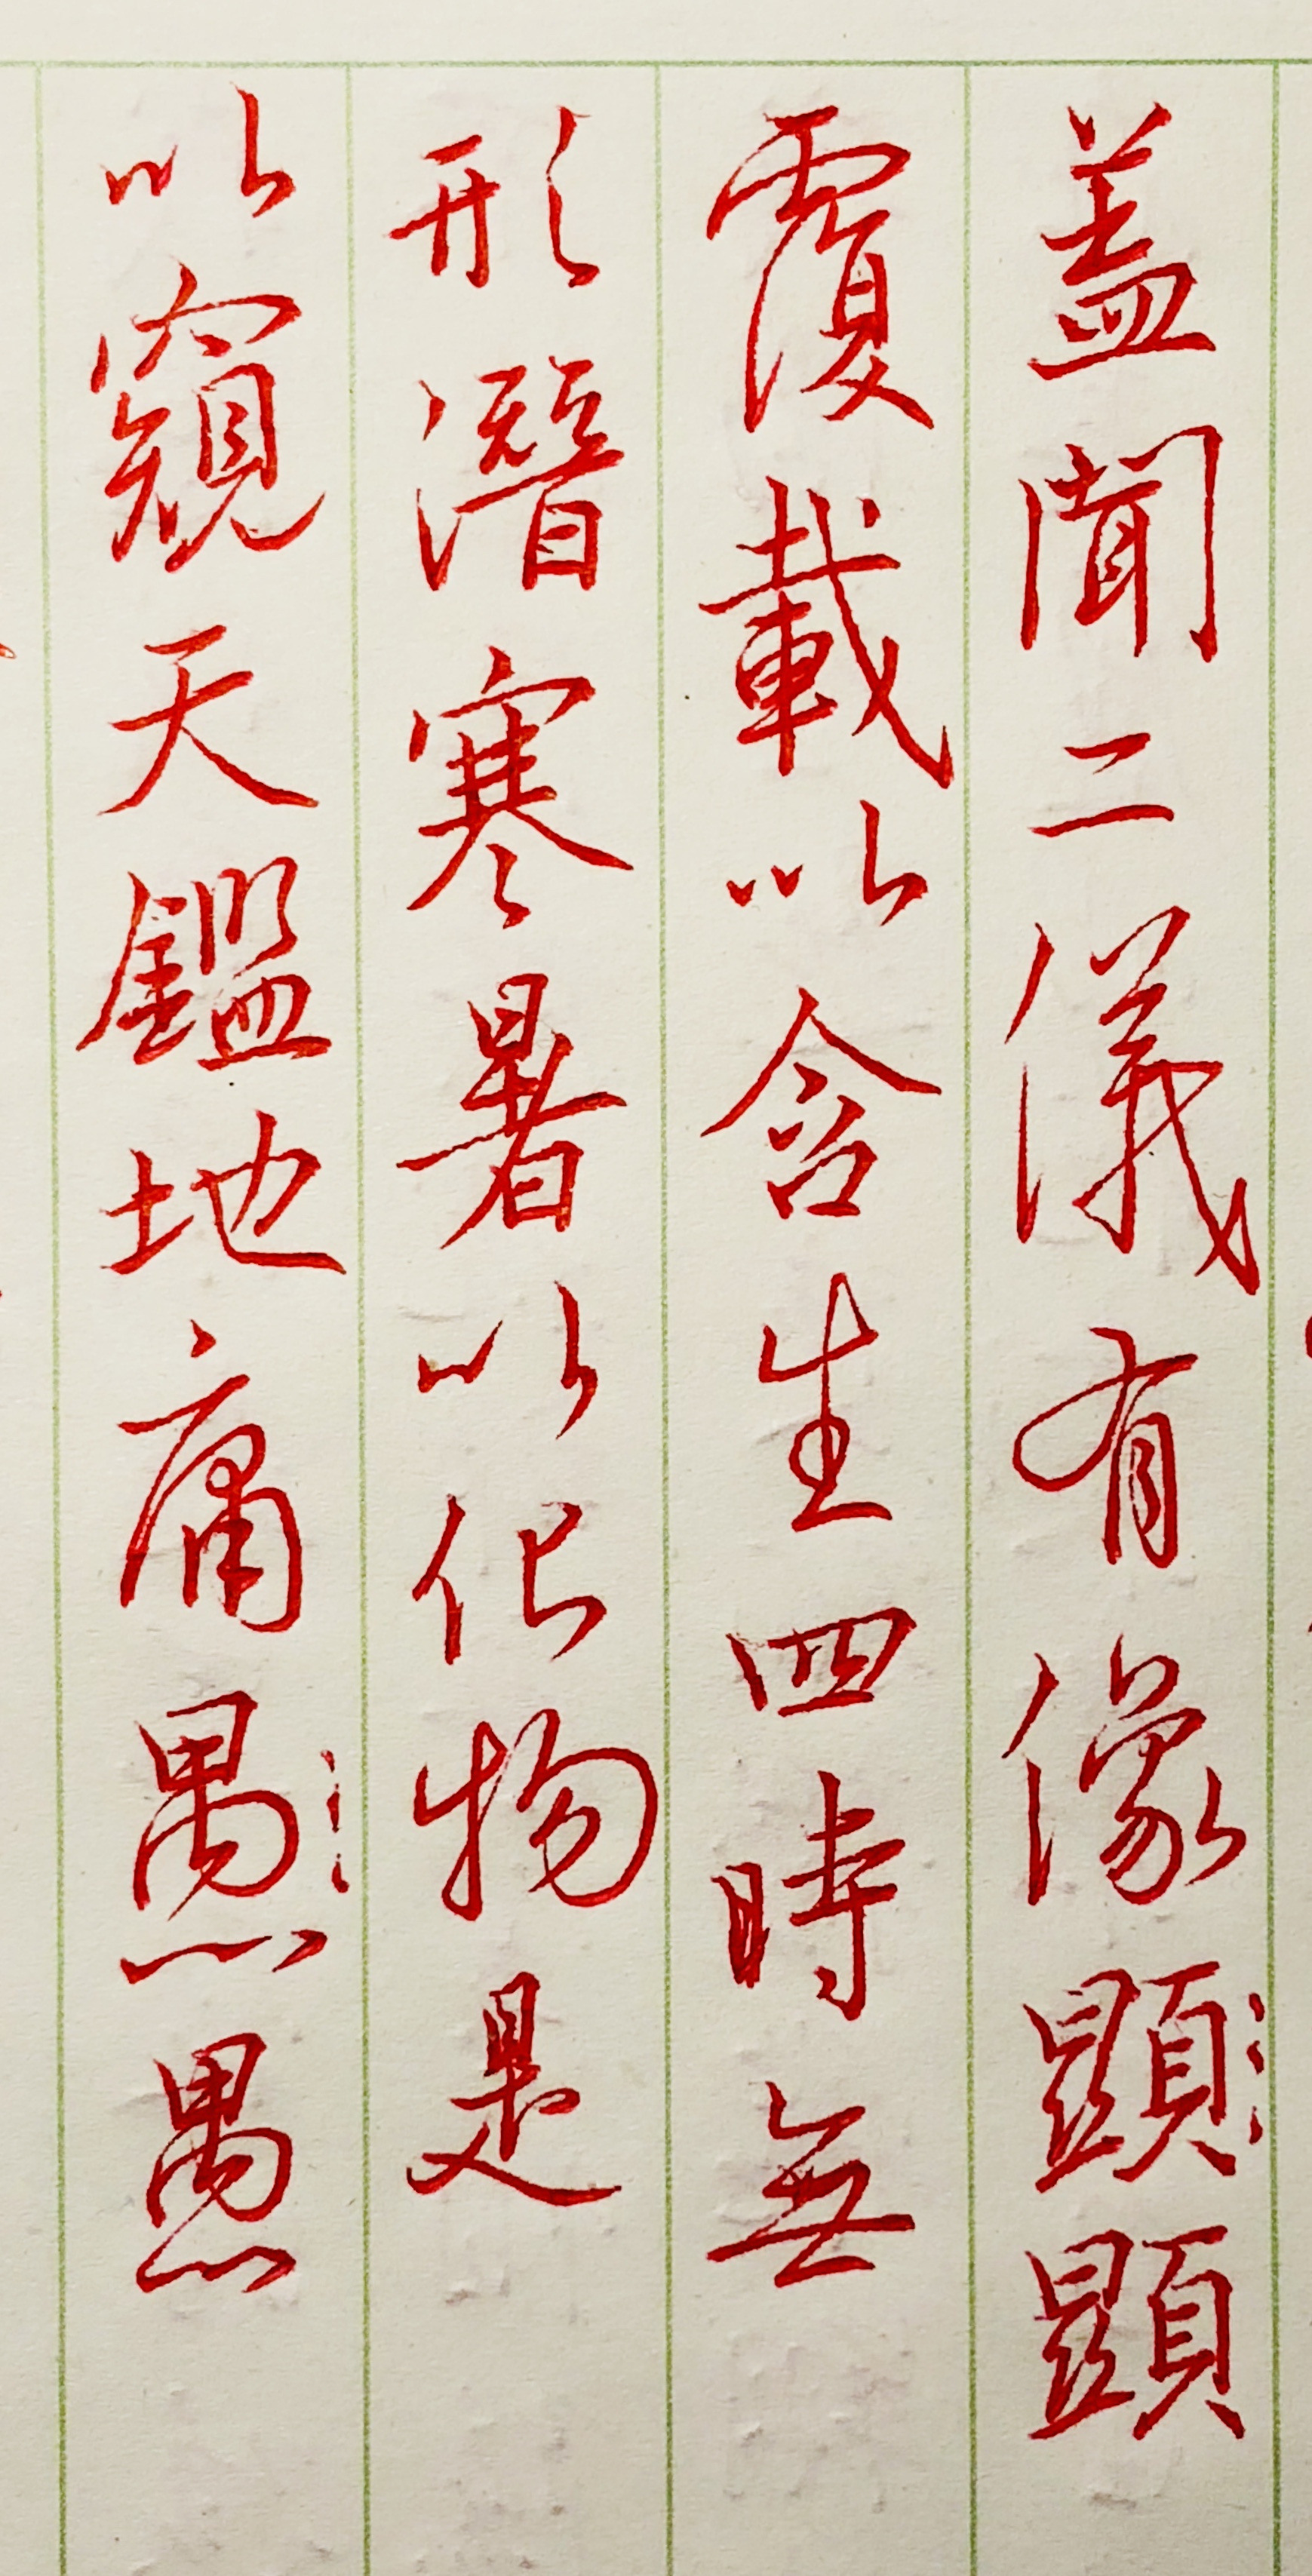 蓋聞二儀有像顯顯
覆載以含生四時無
形潛寒暑以化物是
以窺天鑑地庸愚愚